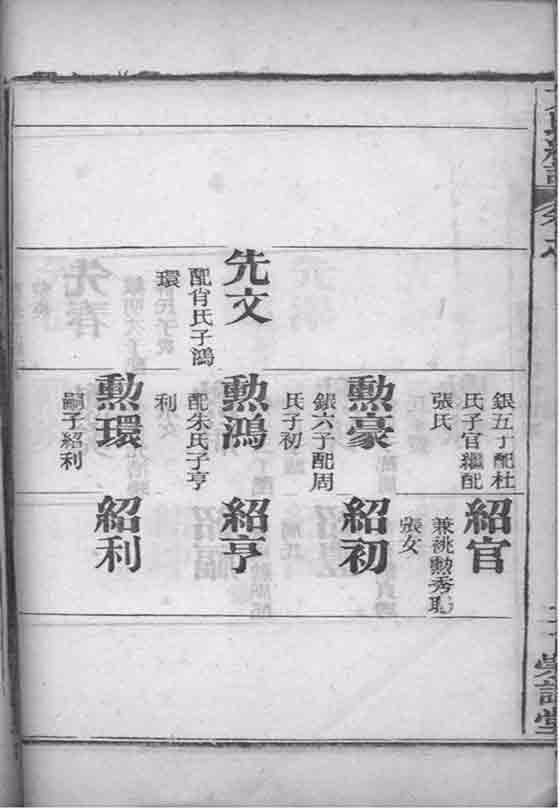 先文
配肖氏子鴻
環
銀五子配杜
氏子官繼配
張氏
勲豪
銀六子配周
氏子初
勲鴻
配朱氏子亨
利
勲環
嗣子紹利
紹官
兼祧勲秀聘
張女
紹初
紹亨
紹利